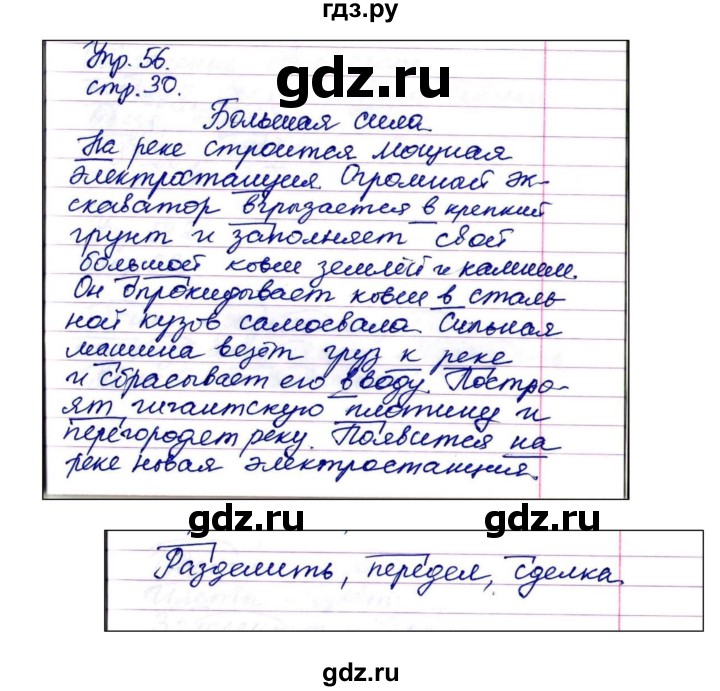 гдз.ру
Упр. 56.
стр. 30.
gdz.ru
Большая сила
На реке строится мощная
электростанция. Огромный эк-
скаватор вгрызается в крепкий
грунт и заполняет свой
большой ковш землёй и камнем.
Он опрокидывает ковш в сталь
ной кузов самосвала. Сильная
машина везёт груз к реке
и сбрасывает его в воду. Постро-
ят гигантскую плотину и
перегородят реку. Появится на
реке новая электростанция.
gdz.ru gdz.ru
Разделить, передел, сделка.
gdz.ru